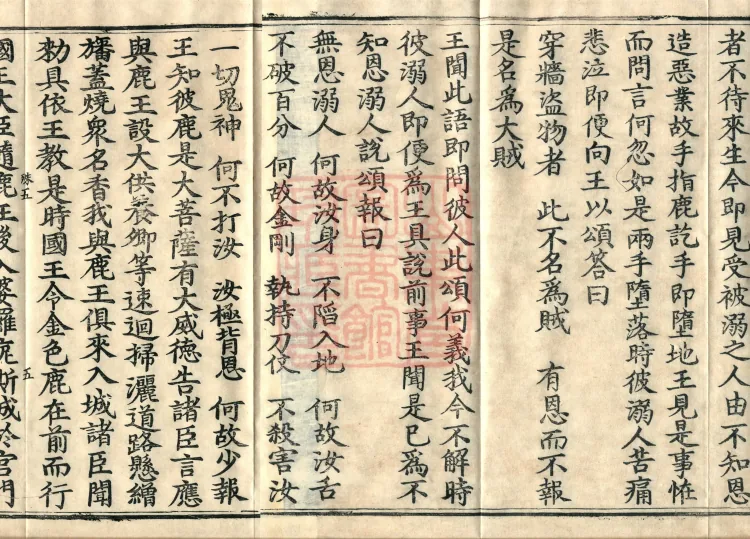 者不待來生今即見受被溺之人由不知恩
造惡業故手指鹿訖手即墮地王見是事恠
而問言何忽如是兩手墮落時彼溺人苦痛
悲泣即便向王以頌答曰
穿牆盜物者 此不名爲賊 有恩而不報
是名爲大賊
王聞此語即問彼人此頌何義我今不解時
彼溺人即便爲王具說前事王聞是已爲不
知恩溺人說頌報曰
無恩溺人 何故汝身 不陷入地 何故汝舌
不破百分 何故金剛 執持刀仗 不殺害汝
一切鬼神 何不打汝 汝極背恩 何故少報
王知彼鹿是大菩薩有大威德告諸臣言應
與鹿王設大供養卿等速迴掃灑道路懸繒
旛蓋燒衆名香我與鹿王俱來入城諸臣聞
勑具依王教是時國王令金色鹿在前而行
五
國王大臣隨鹿王後入婆羅痆斯城於宮門